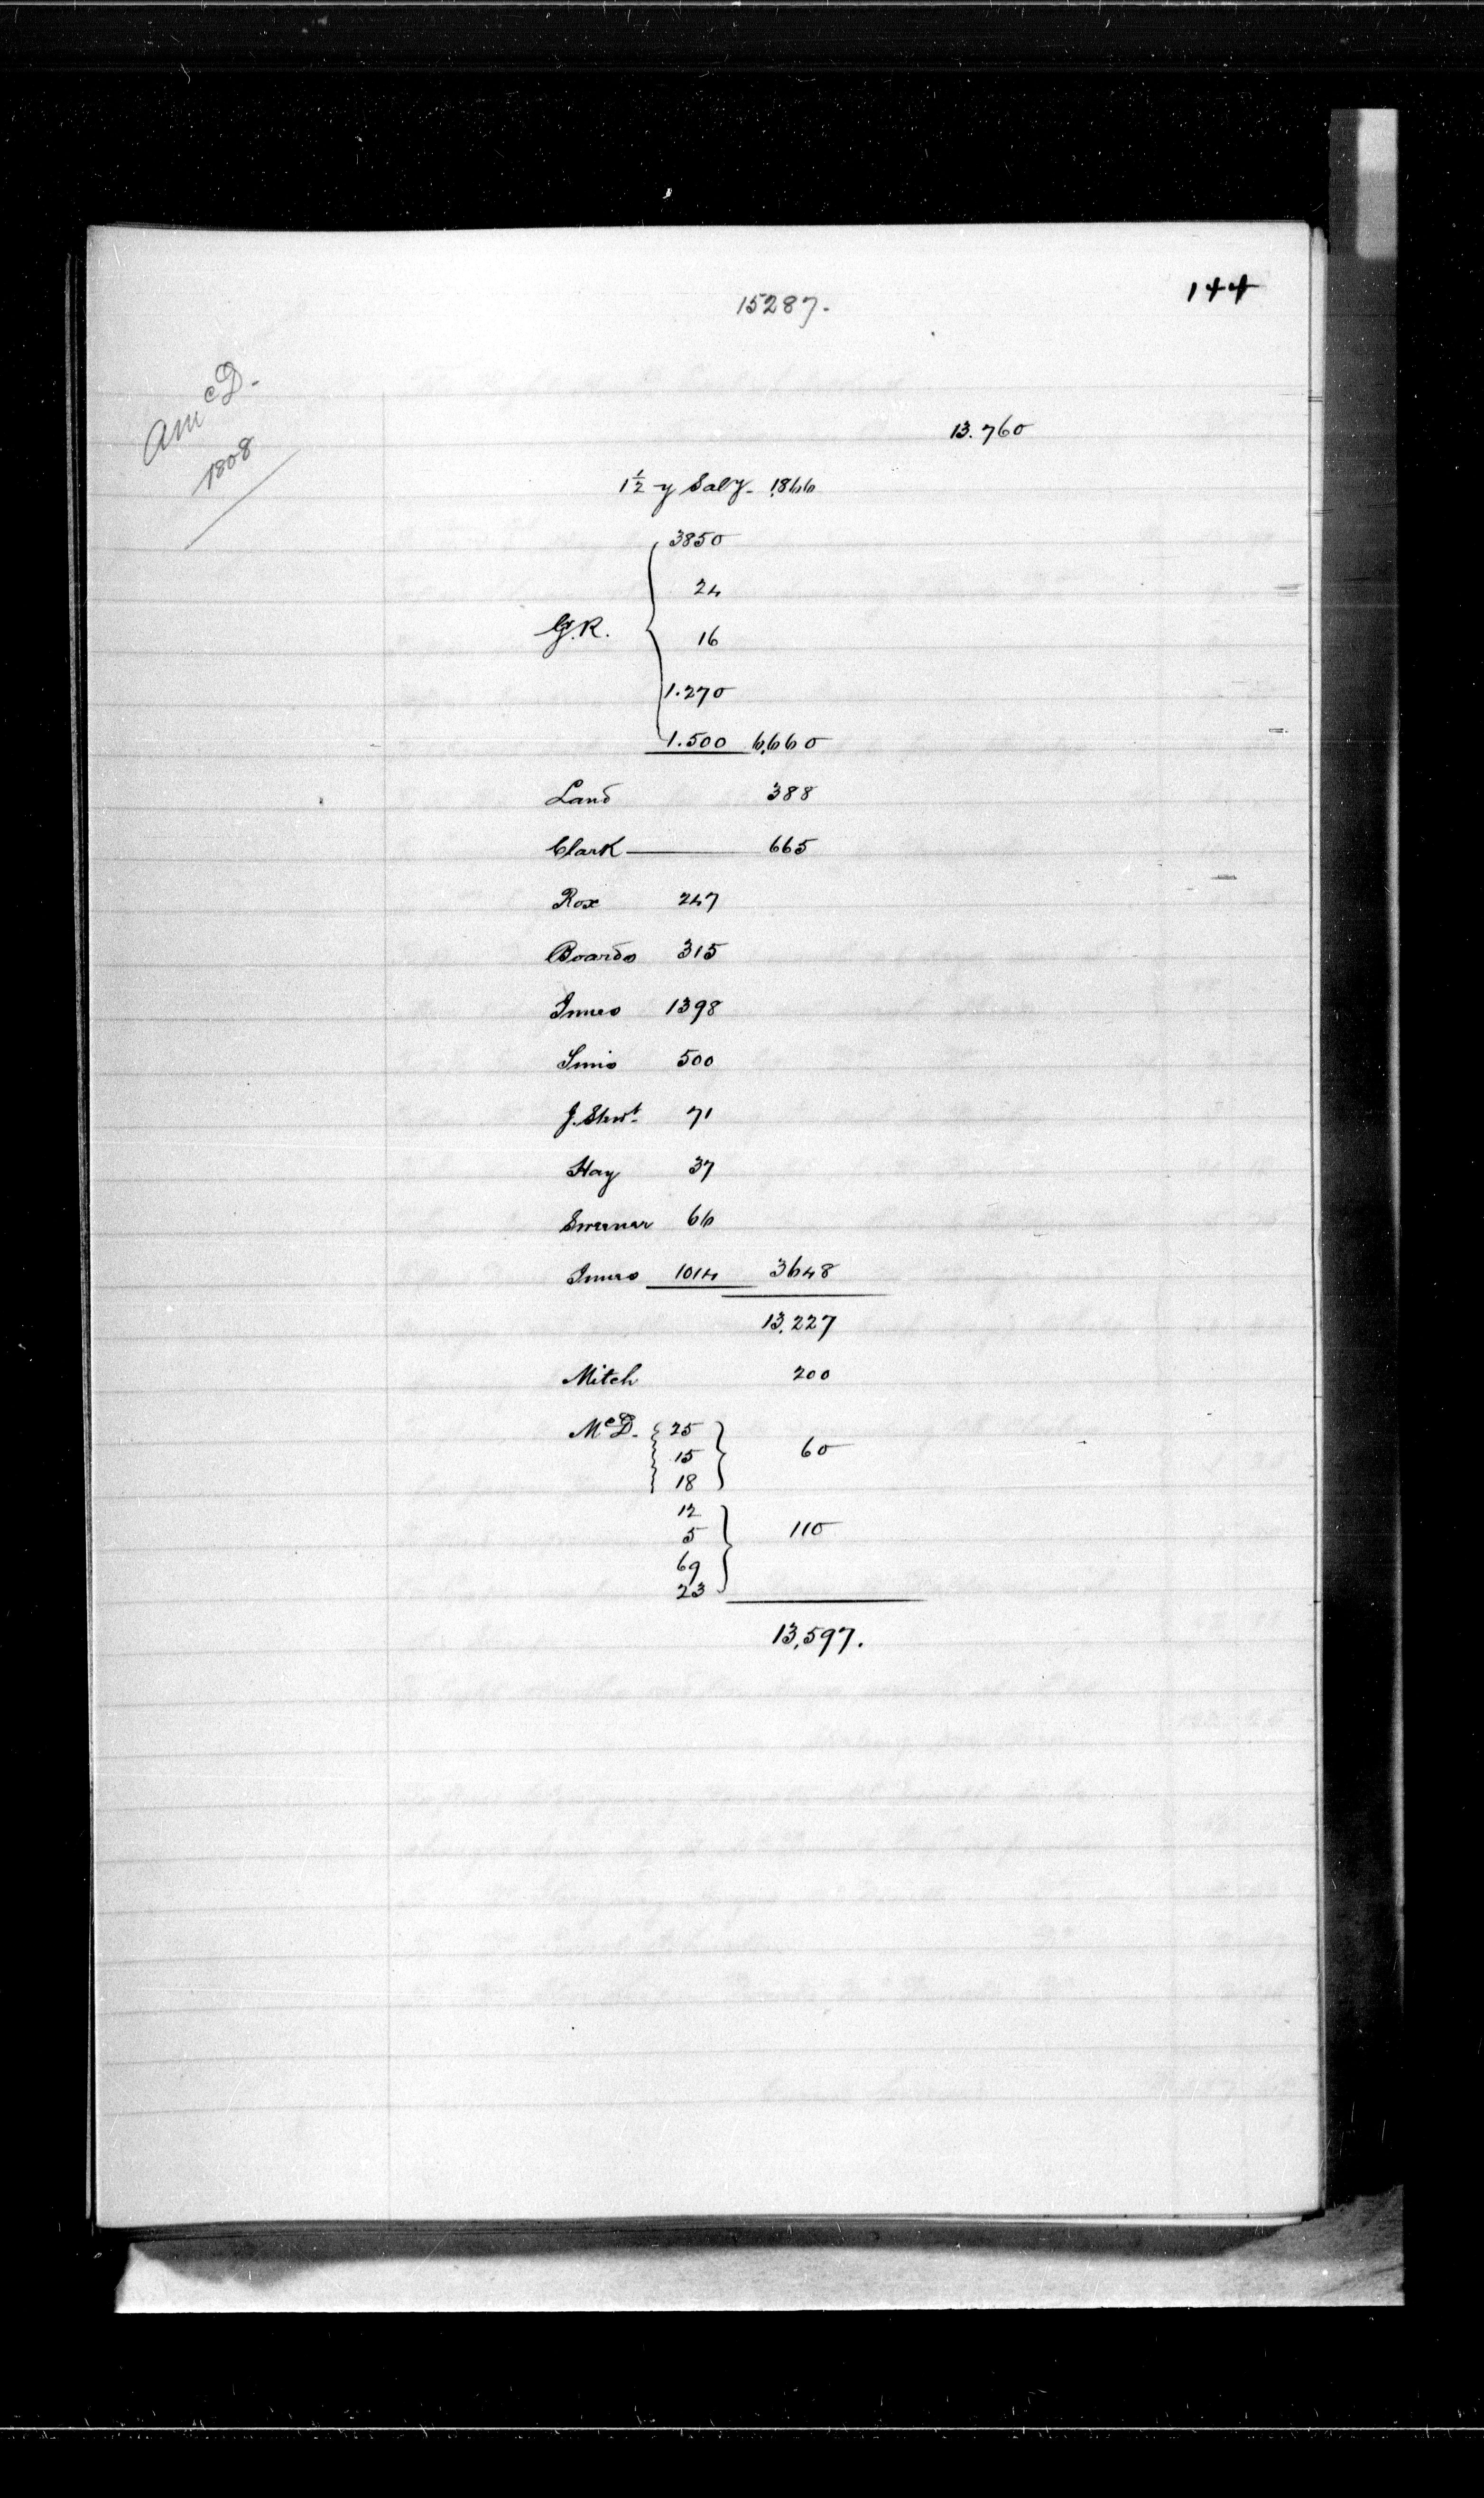 144
15287.
AMcD.
1808
13.760
1½ y Saly - 1866
3850
24
G.R. 16
1.270
1.500 6,660
Land 388
Clark 665
Rox 247
Boards 315
Innes 1398
Innis 500
J. Stewt. 71
Hay 37
66
Innes 1014 3648
13,227
Mitch 200
McD. 25
15 60
18
12
5 110
69
23
13,597.